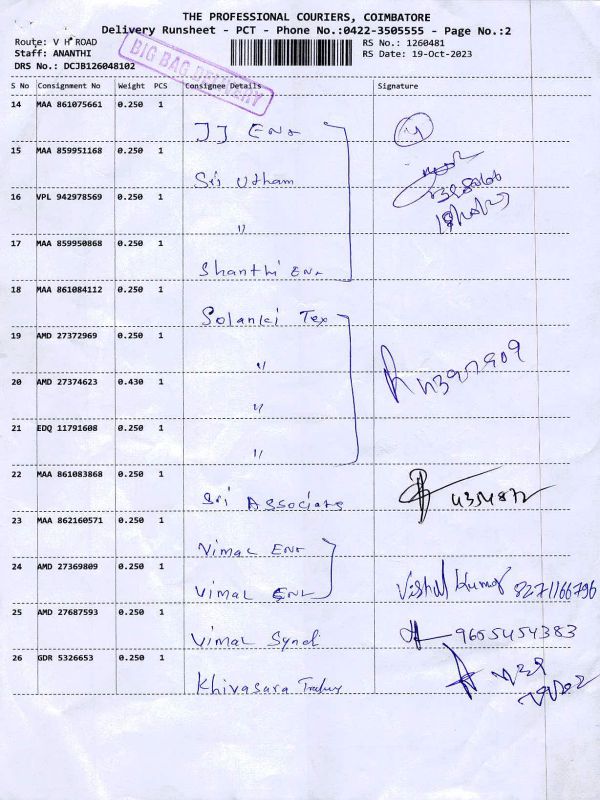 THE PROFESSIONAL COURIERS, COIMBATORE
Delivery Runsheet - PCT - Phone No.:0422-3505555 - Page No.:2
Route: V H ROAD
Staff: ANANTHI
DRS No.: DCJB126048102
RS No.: 1260481
RS Date: 19-Oct-2023
BIG BAG DELIVERY
S No Consignment No Weight PCS Consignee Details Signature
14 MAA 861075661 0.250 1
JJ Ent
15 MAA 859951168 0.250 1
Sri Utham
16 VPL 942978569 0.250 1
"
17 MAA 859950868 0.250 1
Shanthi Ent
18 MAA 861084112 0.250 1
Solanki Tex
19 AMD 27372969 0.250 1
"
20 AMD 27374623 0.430 1
"
21 EDQ 11791608 0.250 1
"
22 MAA 861083868 0.250 1
Sri Associates
23 MAA 862160571 0.250 1
Vimal Ent
24 AMD 27369809 0.250 1
Vimal Ent Vishal Kumar 8271166796
25 AMD 27687593 0.250 1
Vimal Synd 9655454383
26 GDR 5326653 0.250 1
Khivasara